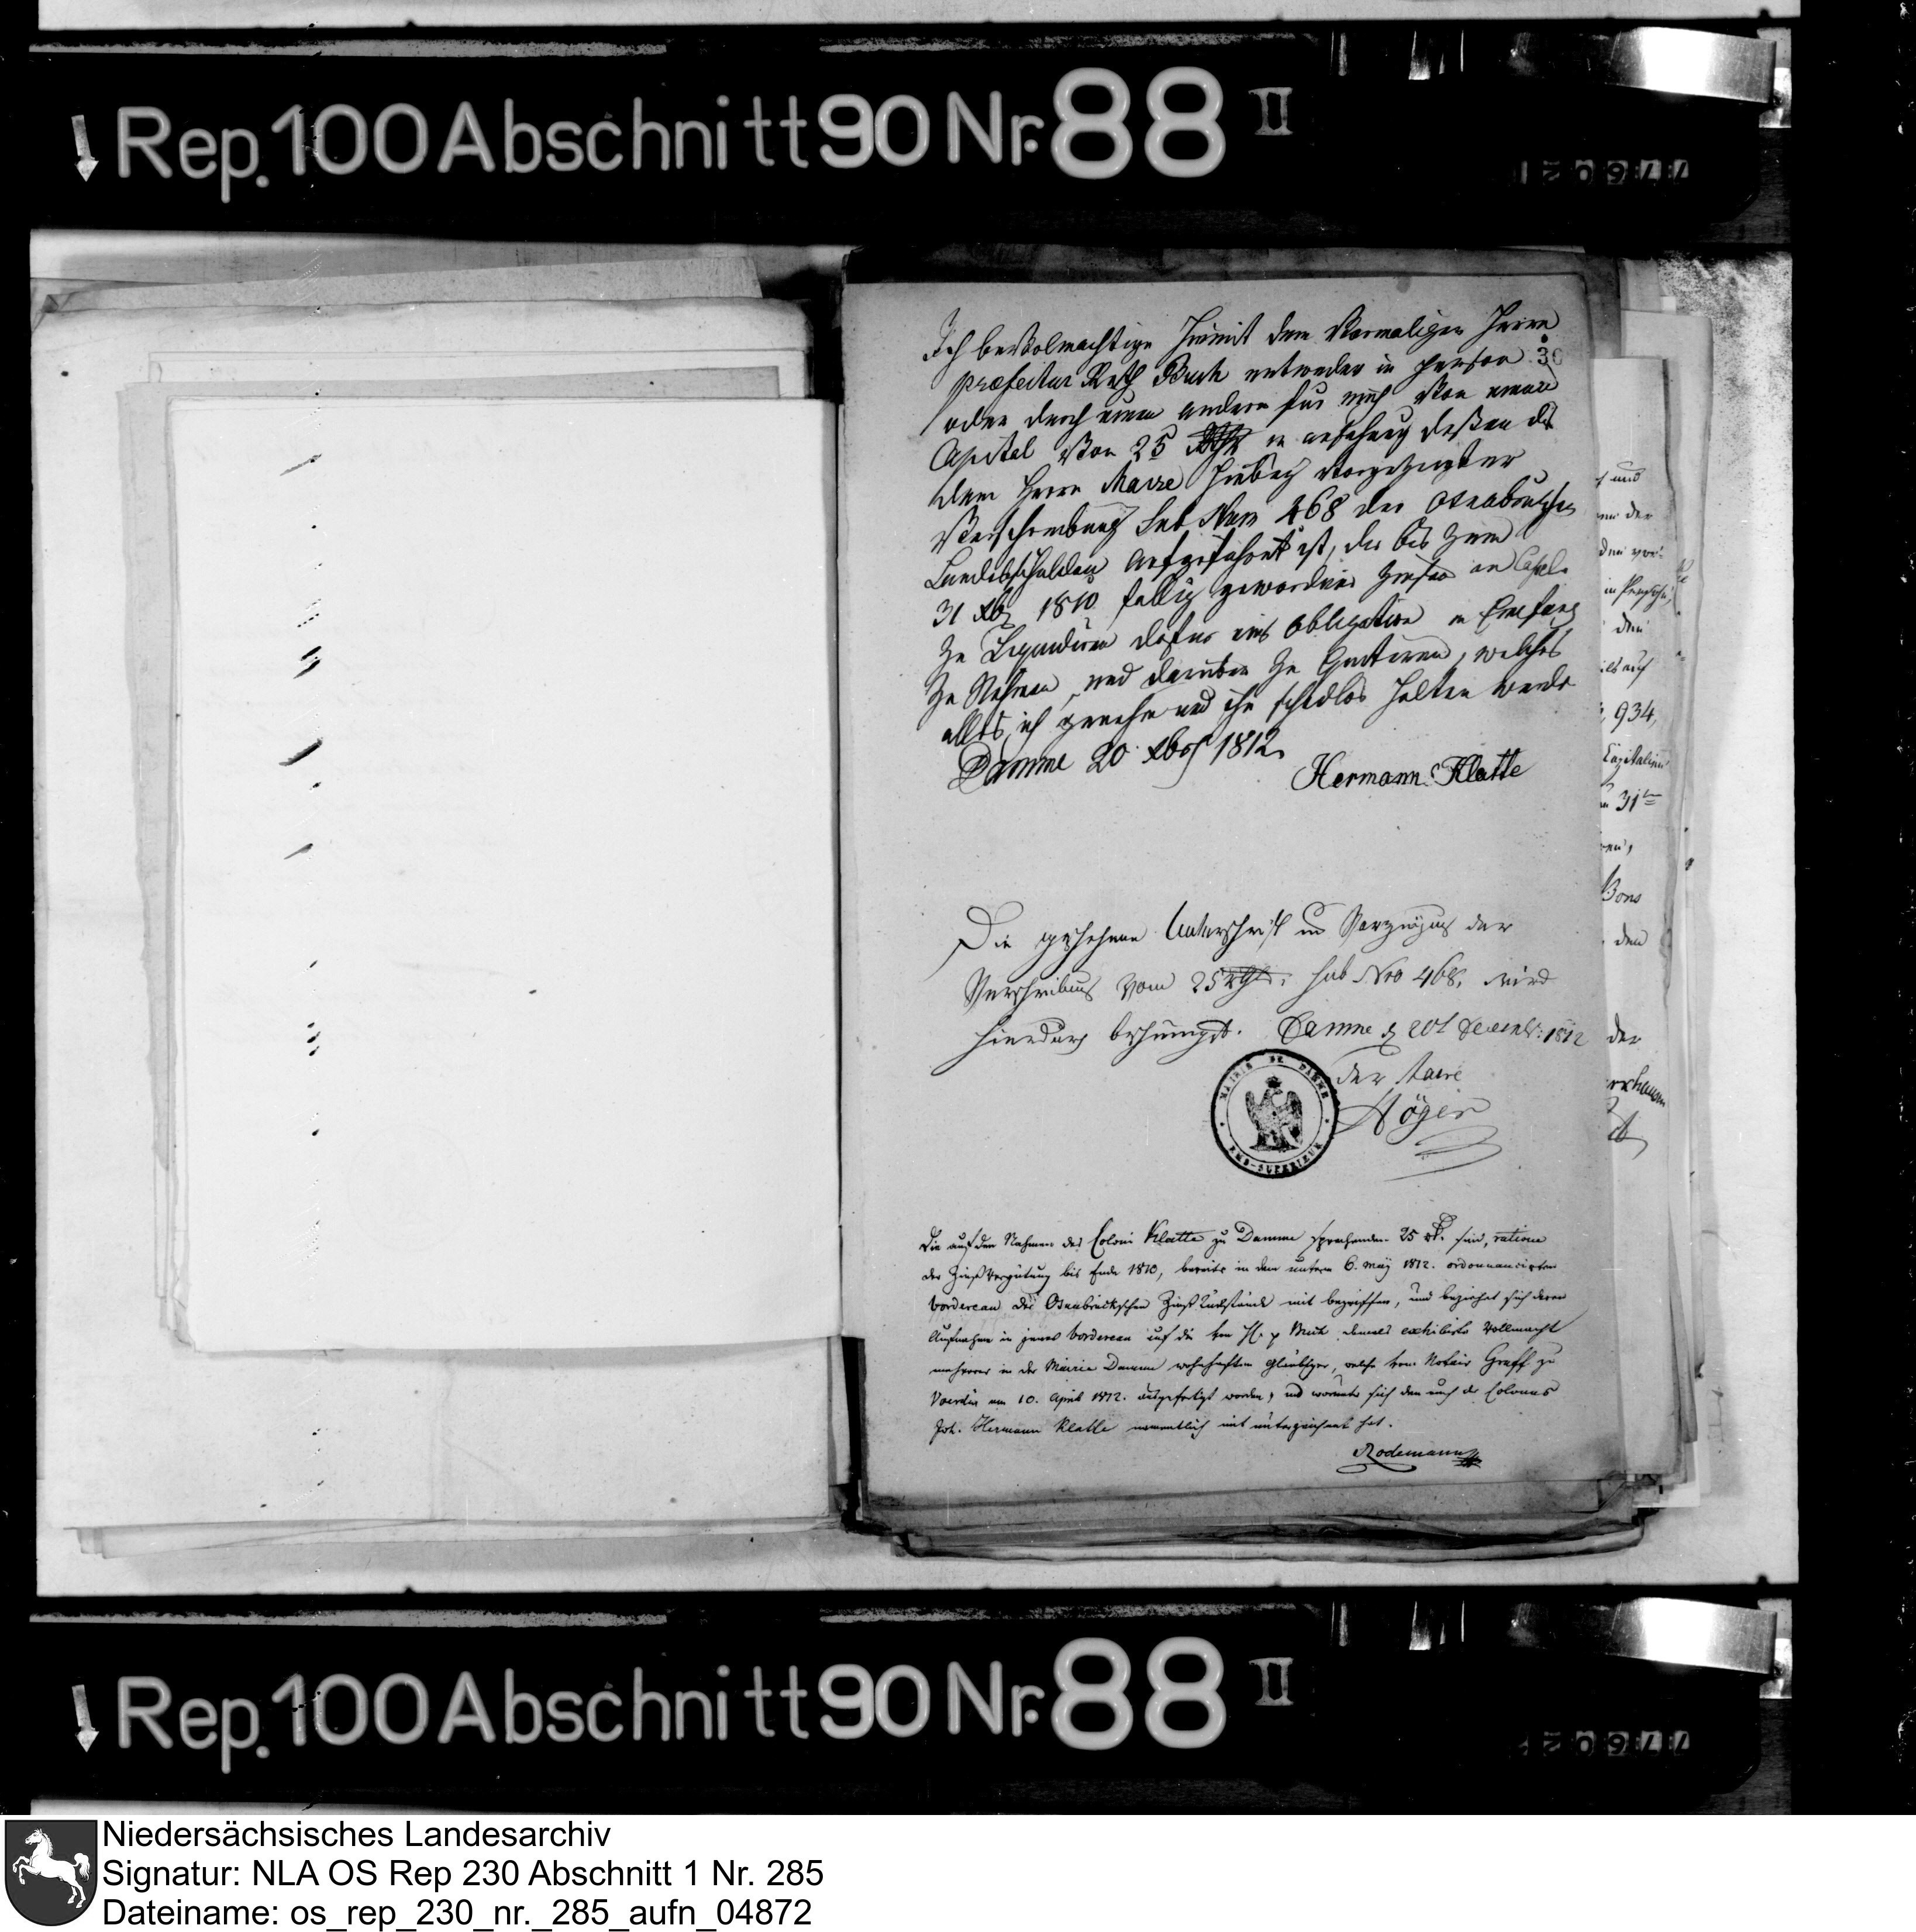 Rep. 100 Abschnitt 90 Nr. 88 II
Ich bevolmachtige hiemit dem Vormaligen Herrn
præfectur Rath Buch entweder in person
oder durch einen andern fur mich Von einem
Capital Von 25 in ansehung deßen die
dem Herrn Maire hiebey vorgezeigter
Verschreibung sub Num 468 der Osnabruckschen
Landesschulden aufgefuhrt ist, die bis zum
31 Xbr 1810 fallig gewordene Zinsen in Cassel
zu Liquidiren dafur eine Obligation in Empfang
zu Nehmen, und daruber zu Quitiren, welches
alles ich genehm und ihn schadlos halten werde
Damme 20 Xbr 1812
Hermann Klatte
Die geschehene Unterschrift und Vorzeigung der
Verschreibung vom 25 sub Nro 468, wird
hierdurch bescheinigt. Damme d 20t Decembr: 1812
der Maire
MAIRIE DE DAMME
EMS-SUPERIEUR
Die auf den Nahmen des Coloni Klatte zu Damme sprechenden 25 rt. sind, ratione
der Zinß Vergütung bis Ende 1810, bereits in dem unterm 6. May 1812. ordonnancirten
bordereau der Osnabrückschen Zinß Rückstände mit begriffen, und beziehet sich deren
Aufnahme in jenes bordereau auf die von H. p Buch damals exhibirte Vollmacht
mehrerer in der Mairie Damme wohnhaften Gläubiger, welche vom Notair Graff zu
Voerden am 10. April 1812. ausgefertigt worden, und worunter sich denn auch der Colonus
Joh. Hermann Klatte namentlich mit unterzeichnet hat.
Rodemann
Rep. 100 Abschnitt 90 Nr. 88 II
Niedersächsisches Landesarchiv
Signatur: NLA OS Rep 230 Abschnitt 1 Nr. 285
Dateiname: os_rep_230_nr._285_aufn_04872